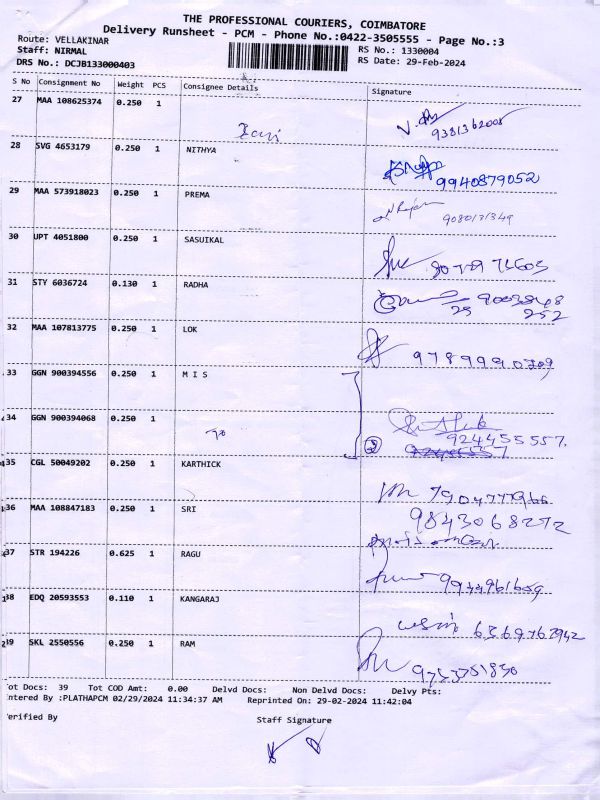 THE PROFESSIONAL COURIERS, COIMBATORE
Delivery Runsheet - PCM - Phone No.:0422-3505555 - Page No.:3
Route: VELLAKINAR RS No.: 1330004
Staff: NIRMAL RS Date: 29-Feb-2024
DRS No.: DCJB133000403
S No Consignment No Weight PCS Consignee Details Signature
27 MAA 108625374 0.250 1
9381362008
28 SVG 4653179 0.250 1 NITHYA
9940879052
29 MAA 573918023 0.250 1 PREMA
9080131349
30 UPT 4051800 0.250 1 SASUIKAL
31 STY 6036724 0.130 1 RADHA
32 MAA 107813775 0.250 1 LOK
33 GGN 900394556 0.250 1 M I S
34 GGN 900394068 0.250 1
924455557
35 CGL 50049202 0.250 1 KARTHICK
7904777966
36 MAA 108847183 0.250 1 SRI
9843068272
37 STR 194226 0.625 1 RAGU
9944961659
38 EDQ 20593553 0.110 1 KANGARAJ
6369762942
39 SKL 2550556 0.250 1 RAM
Tot Docs: 39 Tot COD Amt: 0.00 Delvd Docs: Non Delvd Docs: Delvy Pts:
ntered By :PLATHAPCM 02/29/2024 11:34:37 AM Reprinted On: 29-02-2024 11:42:04
erified By Staff Signature